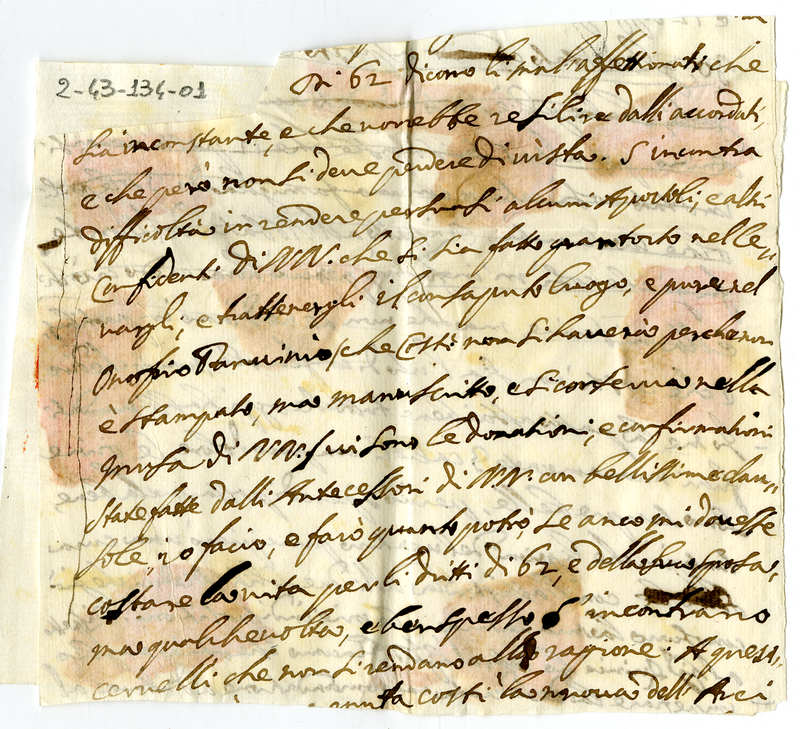 2-43-134-01
Di 62 dicono li suoi affettionati che
sia inconstante, e che vorrebbe resilire dalli accordati,
e che però non si deve perdere di vista. S'incontra
difficoltà in rendere persuasi alcuni Apostoli, e altri
Confidenti di NN. che si sia fatto gran torto nelle,,
vargli, e trattenergli il consaputo luogo, e pure nel
Onofrio Panuinio (che costì non si haverà perche non
è stampato, ma manuscritto, e si conserva nella
di NN.) vi sono le donationi, e confirmationi
state fatte dalli Antecessori di NN. con bellissime clau,,
sole, io facio, e farò quanto potrò, se anco mi dovesse
costare la vita per li dritti di 62, e della sua sposa,
ma qualche volta, e ben spesso s'incontrano
cervelli che non si rendano alla ragione. A questi,,
costì la nuova dell' Arci